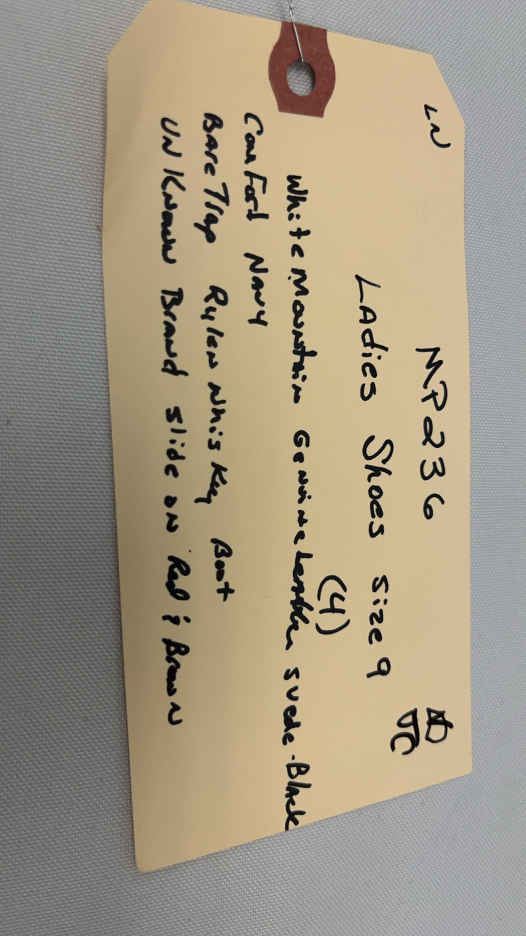 LN
MP236
Ladies Shoes size 9
JC
(4)
White Mountain Genuine Leather suede-Black
Comfort Navy
BareTrap Rylen Whiskey Boot
UNKnown Brand slide on Red & Brown